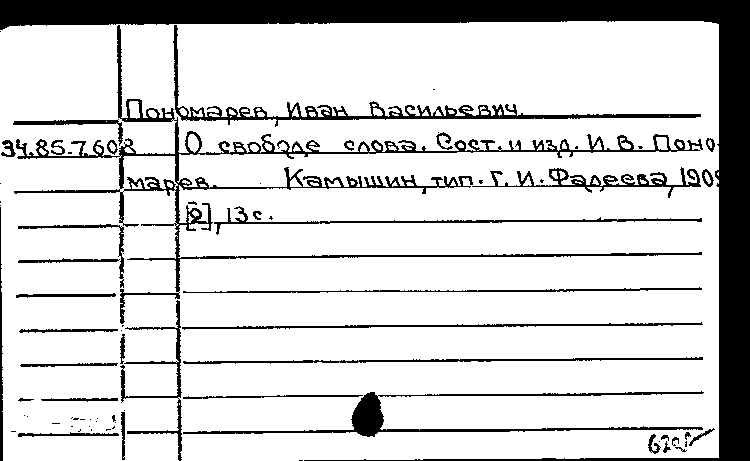 Пономарев, Иван Васильевич.
34.85.7.602 О свободе слова. Сост. и изд. И. В. Поно-
марев. Камышин, тип. Г. И. Фадеева, 1909
[2], 13 с.